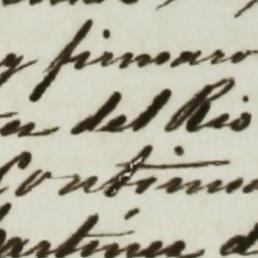 y firmaro
del Rio
Continua
Martínez d